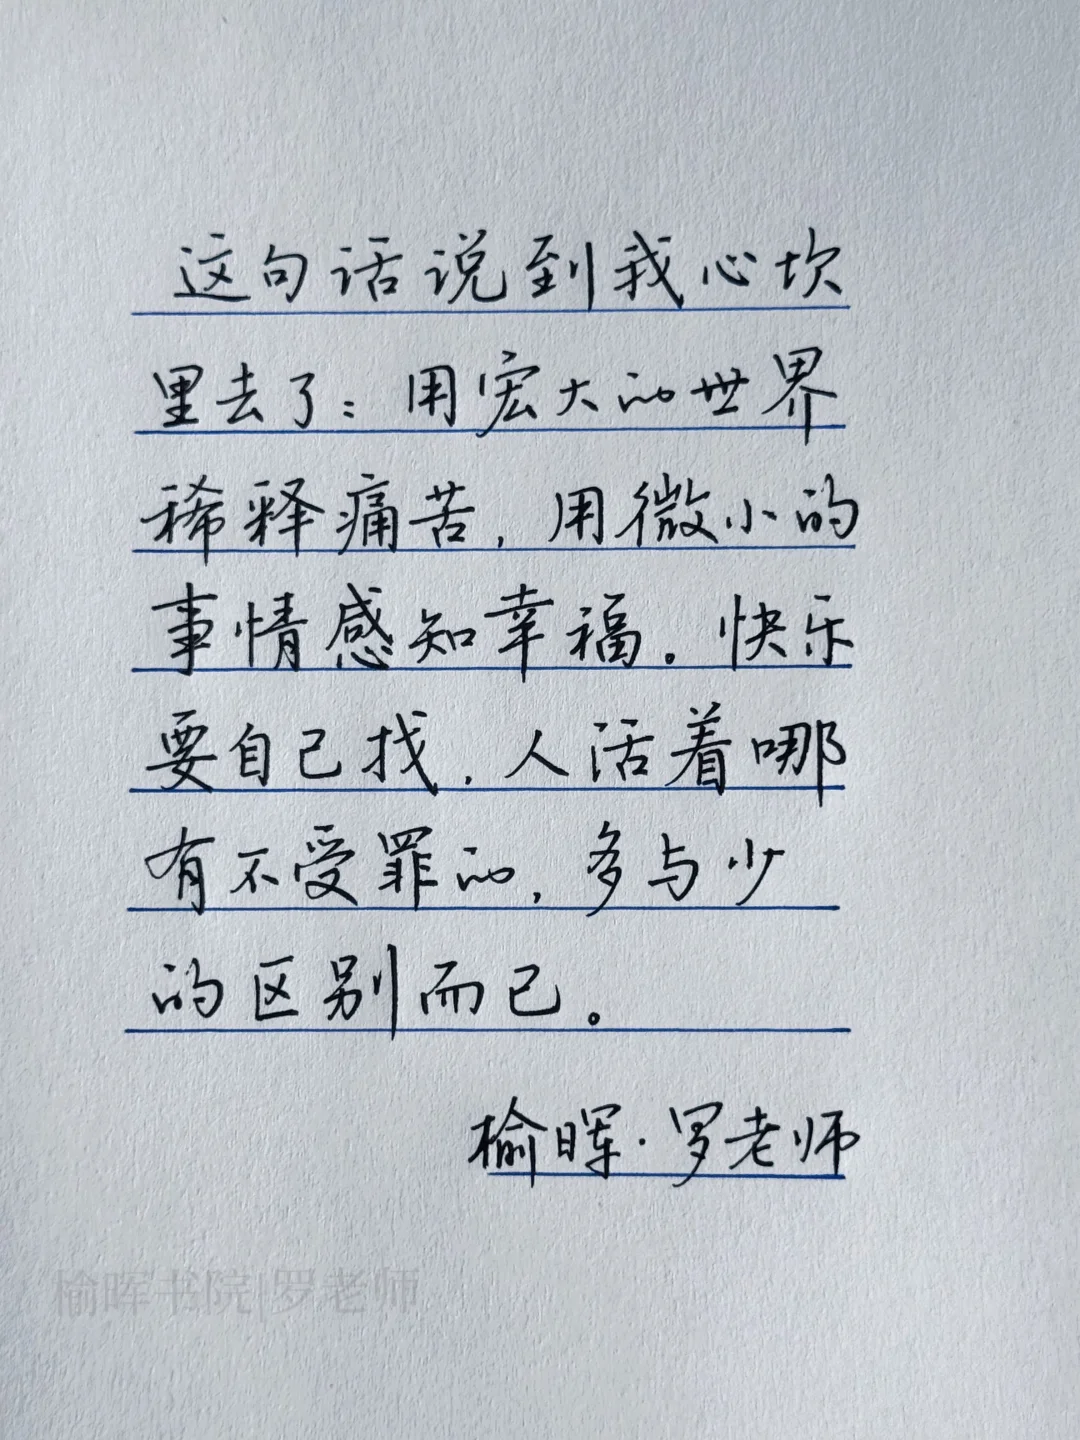 这句话说到我心坎
里去了：用宏大的世界
稀释痛苦，用微小的
事情感知幸福。快乐
要自己找，人活着哪
有不受罪的，多与少
的区别而已。
榆晖·罗老师
榆晖书院|罗老师